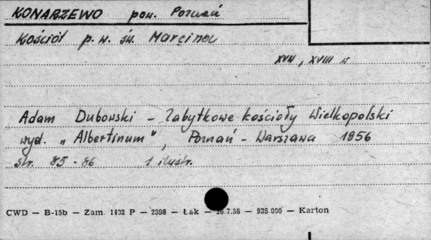 KONARZEWO pow. Poznań
Kościół p. w. św. Marcina
XVII, XVIII w
Adam Dubowski - Zabytkowe kościoły Wielkopolski
wyd. „Albertinum", Poznań - Warszawa 1956
str. 85 - 86 1 ilustr.
CWD — B-15b — Zam. 1402 P — 2398 — Łak — 7.56 — 935.000 — Karton